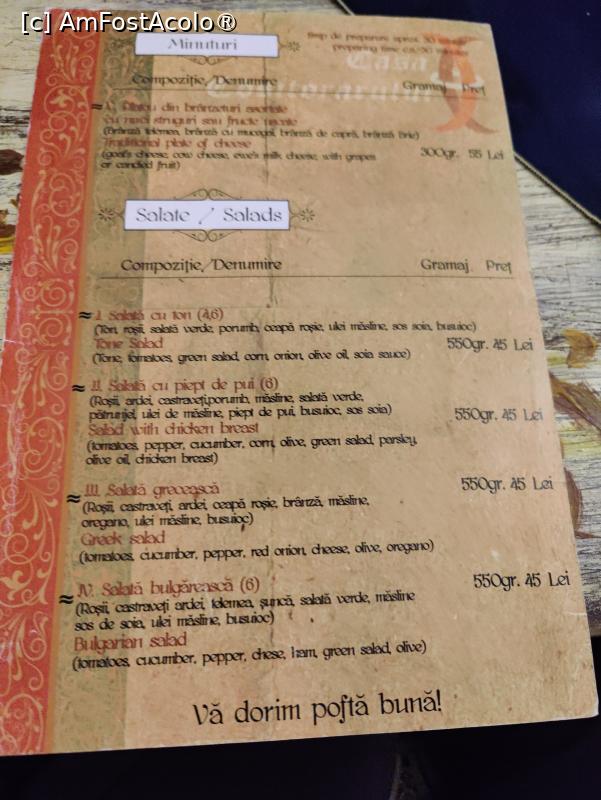 [c] AmFostAcolo®
Minuturi
timp de preparare aprox. 30 minute
preparing time ca. 30 minutes
Casa
Compoziție/Denumire Gramaj Preț
I. Platou din brânzeturi asortate
cu nuci struguri sau fructe uscate
(Brânză telemea, brânză cu mucegai, brânză de capră, brânză Brie)
Traditional plate of cheese
(goat's cheese, cow cheese, ewe's milk cheese, with grapes
or candied fruit)
300gr. 55 Lei
Salate / Salads
Compoziție/Denumire Gramaj Preț
≈ I. Salată cu ton (4,6)
(Ton, roșii, salată verde, porumb, ceapă roșie, ulei măsline, sos soia, busuioc)
Tone Salad 550gr. 45 Lei
(Tone, tomatoes, green salad, corn, onion, olive oil, soia sauce)
≈ II. Salată cu piept de pui (6)
(Roșii, ardei, castraveți,porumb, măsline, salată verde,
pătrunjel, ulei de măsline, piept de pui, busuioc, sos soia) 550gr. 45 Lei
Salad with chicken breast
(tomatoes, pepper, cucumber, corn, olive, green salad, parsley,
olive oil, chicken breast)
≈ III. Salată grecească 550gr. 45 Lei
(Roșii, castraveți, ardei, ceapă roșie, brânză, măsline,
oregano, ulei măsline, busuioc)
Greek salad
(tomatoes, cucumber, pepper, red onion, cheese, olive, oregano)
≈ IV. Salată bulgărească (6) 550gr. 45 Lei
(Roșii, castraveți ardei, telemea, șuncă, salată verde, măsline
sos de soia, ulei măsline, busuioc)
Bulgarian salad
(tomatoes, cucumber, pepper, chese, ham, green salad, olive)
Vă dorim poftă bună!